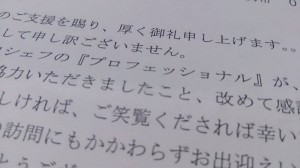 のご支援を賜り、厚く御礼申し上げます。
して申し訳ございません。
シェフの『プロフェッショナル』が、
協力いただきましたこと、改めて感
しければ、ご笑覧くだされば幸い
の訪問にもかかわらずお出迎え